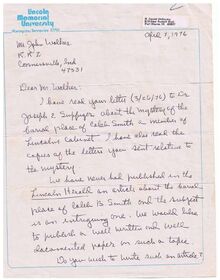 Lincoln
Memorial
University
April 7, 1976
Mr. John Walters
R.R. 2
Connersville, Ind
47331
Dear Mr. Walters:
I have read your letter (3/26/76) to Dr.
Joseph E. Suppiger about the mystery of the
burial place of Caleb Smith — member of
Lincoln Cabinet. I have also read the
copies of the letters you sent relative to
the mystery.
We have never had published in the
Lincoln Herald an article about the burial
place of Caleb B. Smith and the subject
is an intriguing one. We would like
to publish a well written and well
documented paper on such a topic.
Do you wish to write such an article?